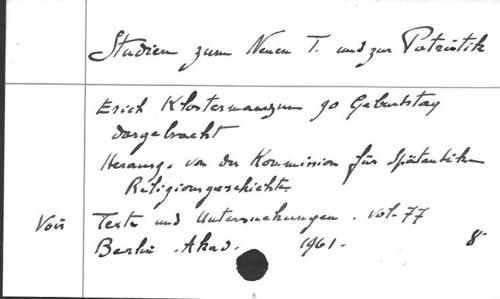 Studien zum Neuen T. und zur Patristik
Erich Klostermann zum 90 Geburtstag
dargebracht
Herausg. von der Kommission für Spätantike
Religionsgeschichte
Voir Texte und Untersuchungen. vol. 77
Berlin. Akad. 1961. 8°